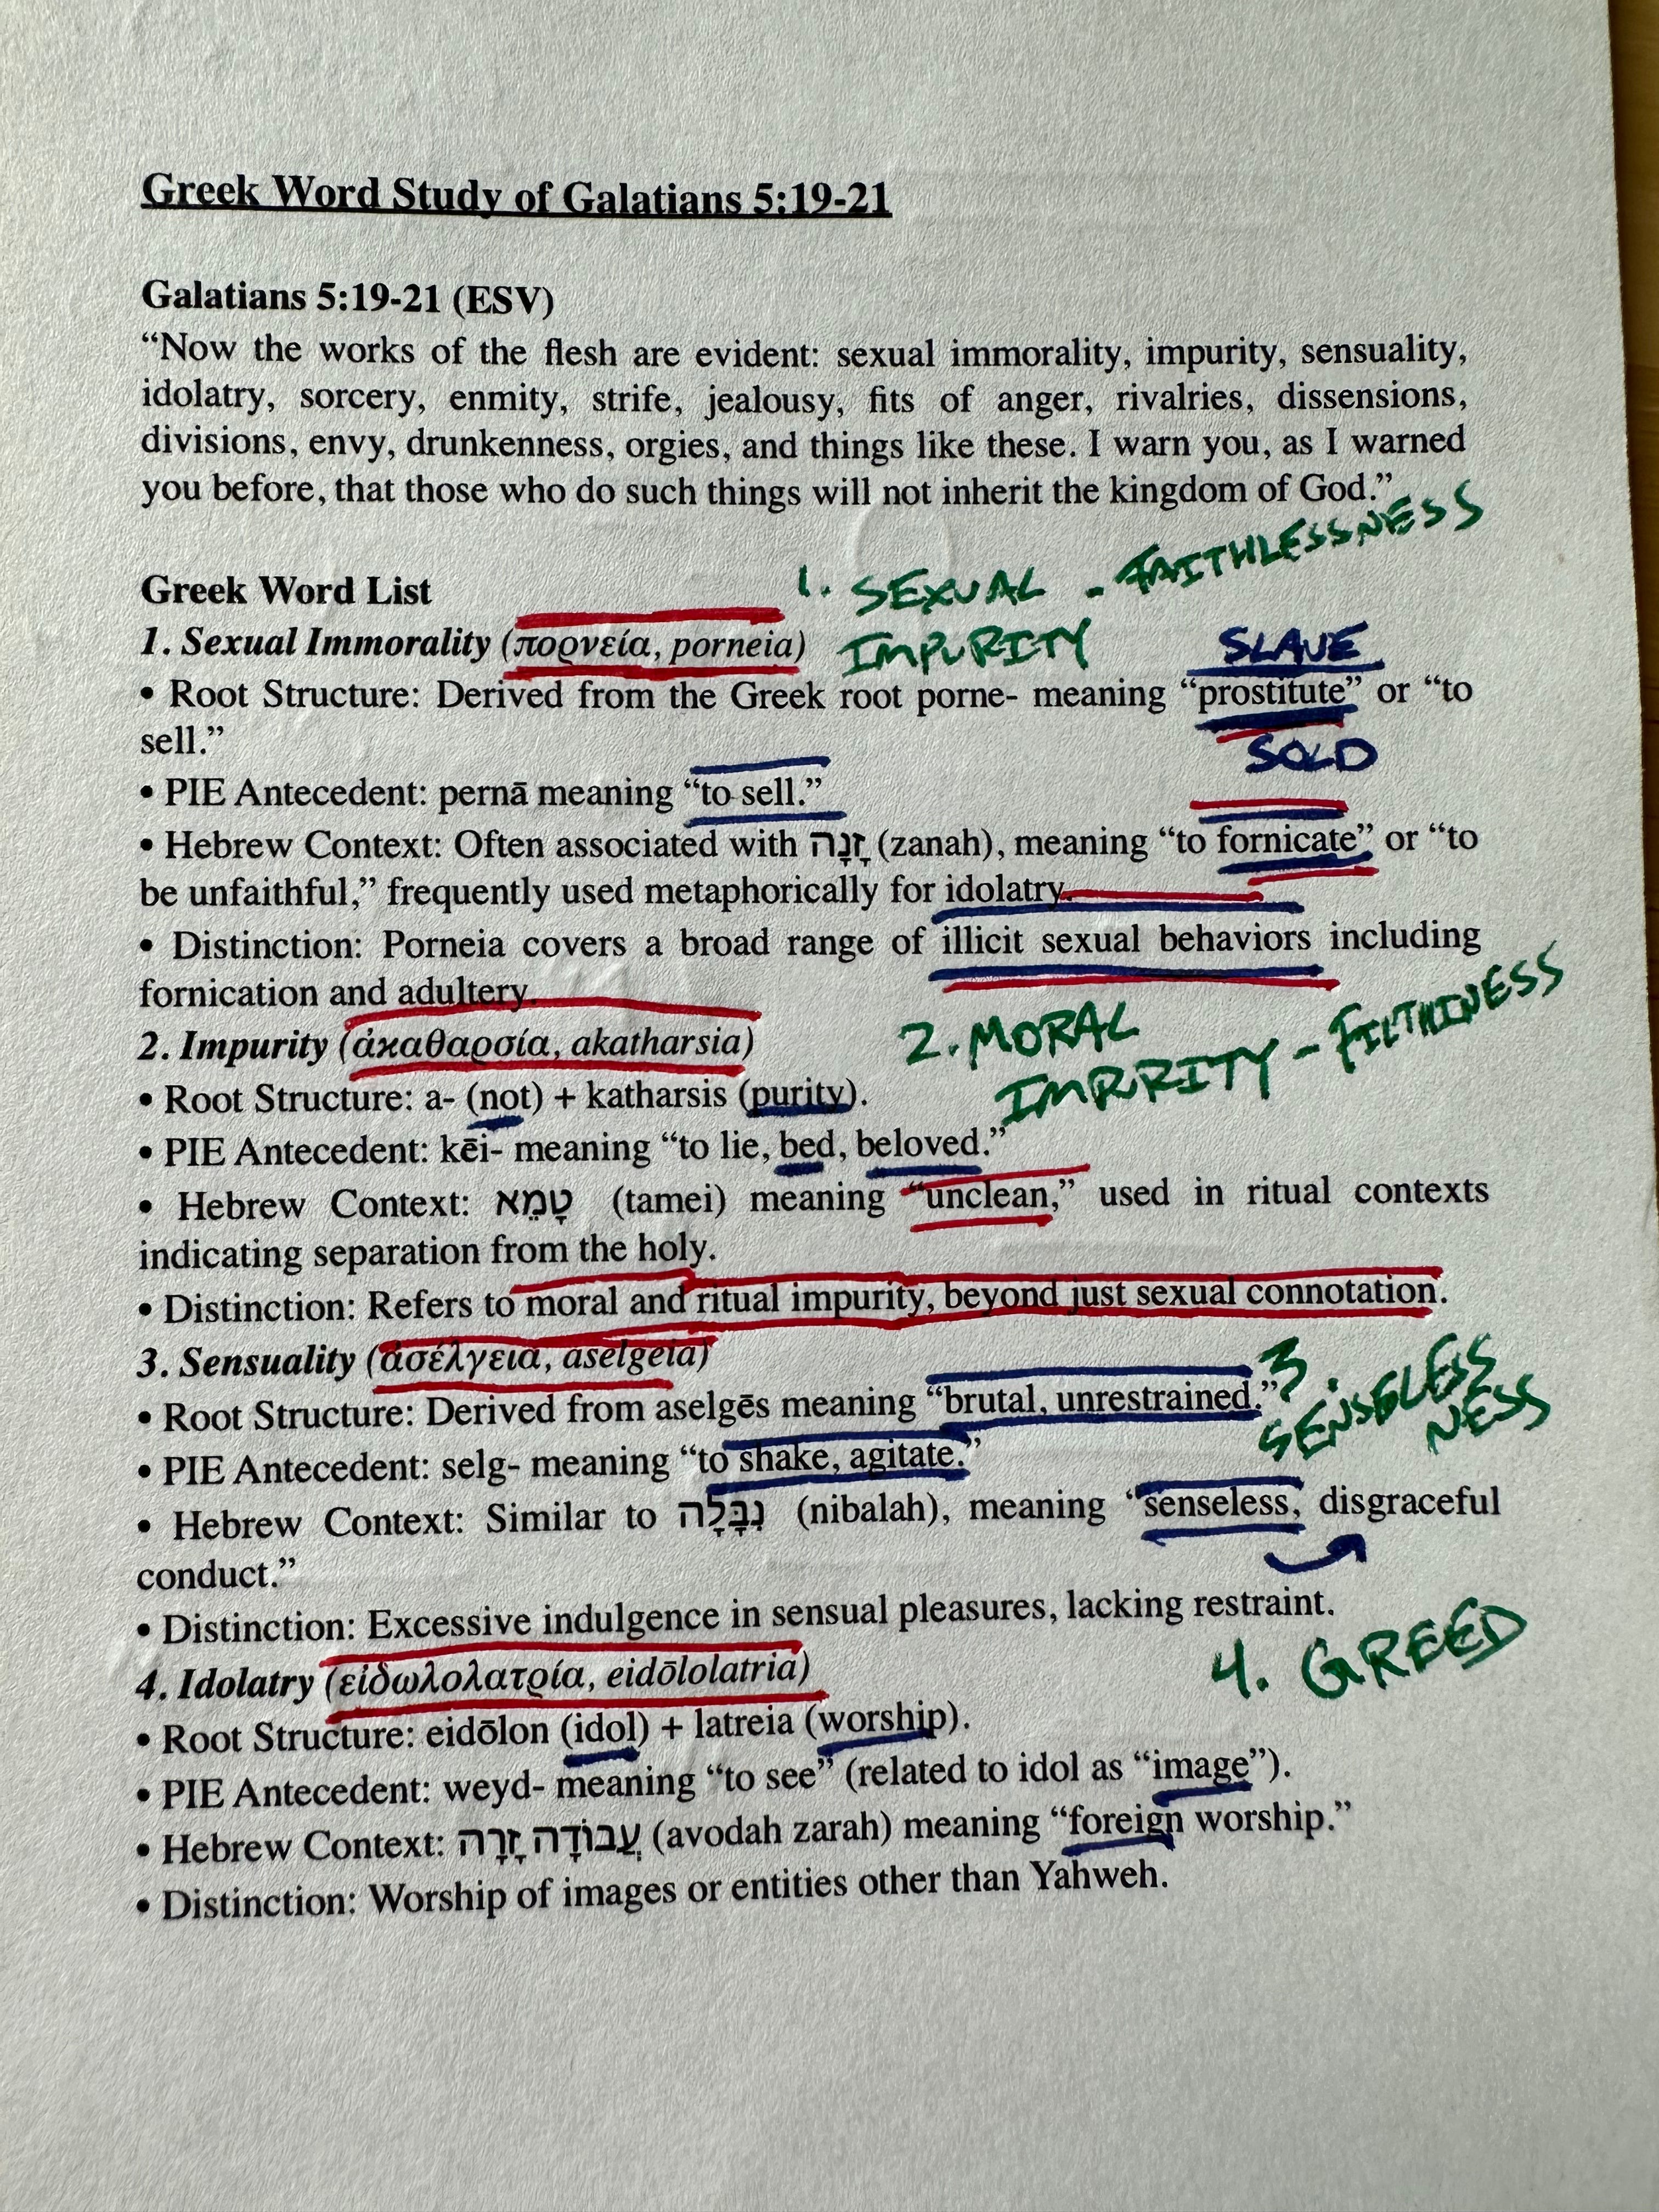 Greek Word Study of Galatians 5:19-21
Galatians 5:19-21 (ESV)
“Now the works of the flesh are evident: sexual immorality, impurity, sensuality,
idolatry, sorcery, enmity, strife, jealousy, fits of anger, rivalries, dissensions,
divisions, envy, drunkenness, orgies, and things like these. I warn you, as I warned
you before, that those who do such things will not inherit the kingdom of God.”
Greek Word List
1. SEXUAL - FAITHLESSNESS
IMPURITY
1. Sexual Immorality (πορνεία, porneia)
SLAVE
• Root Structure: Derived from the Greek root porne- meaning “prostitute” or “to
sell.”
SOLD
• PIE Antecedent: pernā meaning “to sell.”
• Hebrew Context: Often associated with זָנָה (zanah), meaning “to fornicate” or “to
be unfaithful,” frequently used metaphorically for idolatry.
• Distinction: Porneia covers a broad range of illicit sexual behaviors including
fornication and adultery.
2. MORAL
IMPRRITY - FILTHINESS
2. Impurity (ἀκαθαρσία, akatharsia)
• Root Structure: a- (not) + katharsis (purity).
• PIE Antecedent: kēi- meaning “to lie, bed, beloved.”
• Hebrew Context: טָמֵא (tamei) meaning “unclean,” used in ritual contexts
indicating separation from the holy.
• Distinction: Refers to moral and ritual impurity, beyond just sexual connotation.
3. Sensuality (ἀσέλγεια, aselgeia)
3.
SENSELESS
NESS
• Root Structure: Derived from aselgēs meaning “brutal, unrestrained.”
• PIE Antecedent: selg- meaning “to shake, agitate.”
• Hebrew Context: Similar to נִבָּלָה (nibalah), meaning “senseless, disgraceful
conduct.”
• Distinction: Excessive indulgence in sensual pleasures, lacking restraint.
4. GREED
4. Idolatry (εἰδωλολατρία, eidōlolatria)
• Root Structure: eidōlon (idol) + latreia (worship).
• PIE Antecedent: weyd- meaning “to see” (related to idol as “image”).
• Hebrew Context: עֲבוֹדָה זָרָה (avodah zarah) meaning “foreign worship.”
• Distinction: Worship of images or entities other than Yahweh.